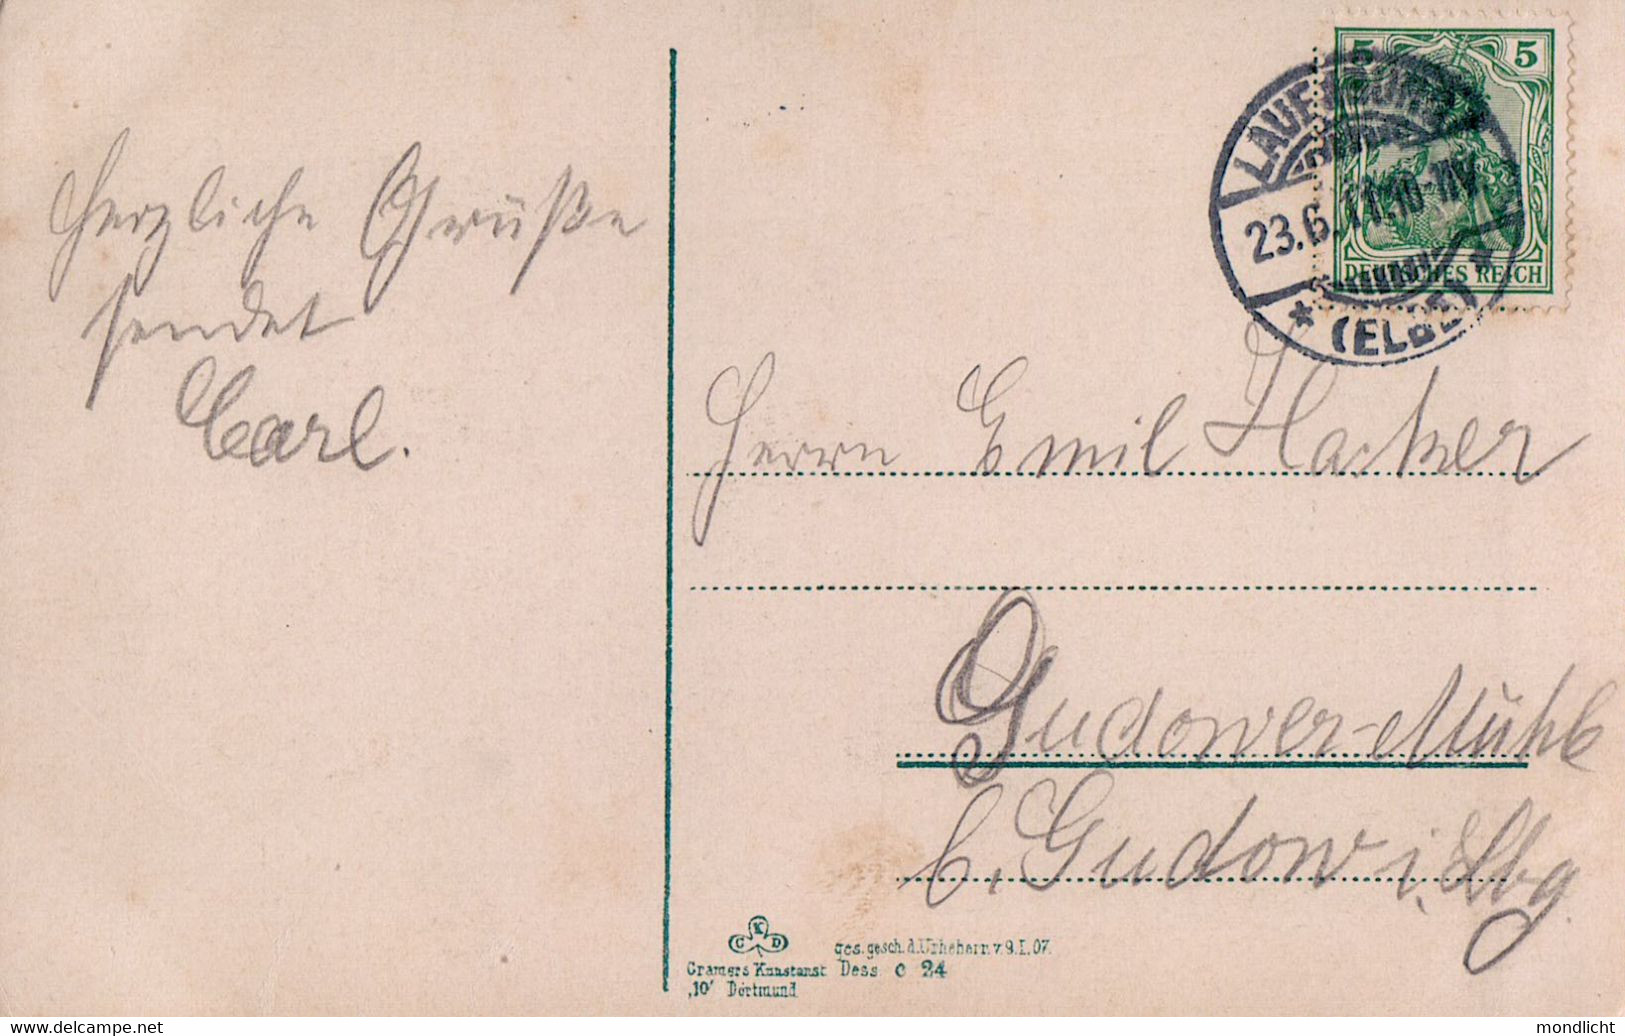 Herzliche Grüße
sendet
Carl.
5 5
DEUTSCHES REICH
LAUENBURG
23.6.11.10-11V
* (ELBE) *
Herrn Emil Hacker
Gudower-Mühle
b. Gudow i. Lbg.
C K D
Cramers Kunstanst
„10" Dortmund
ges. gesch. d. Urhebern v. 9. I. 07.
Dess. C 24
www.delcampe.net
mondlicht